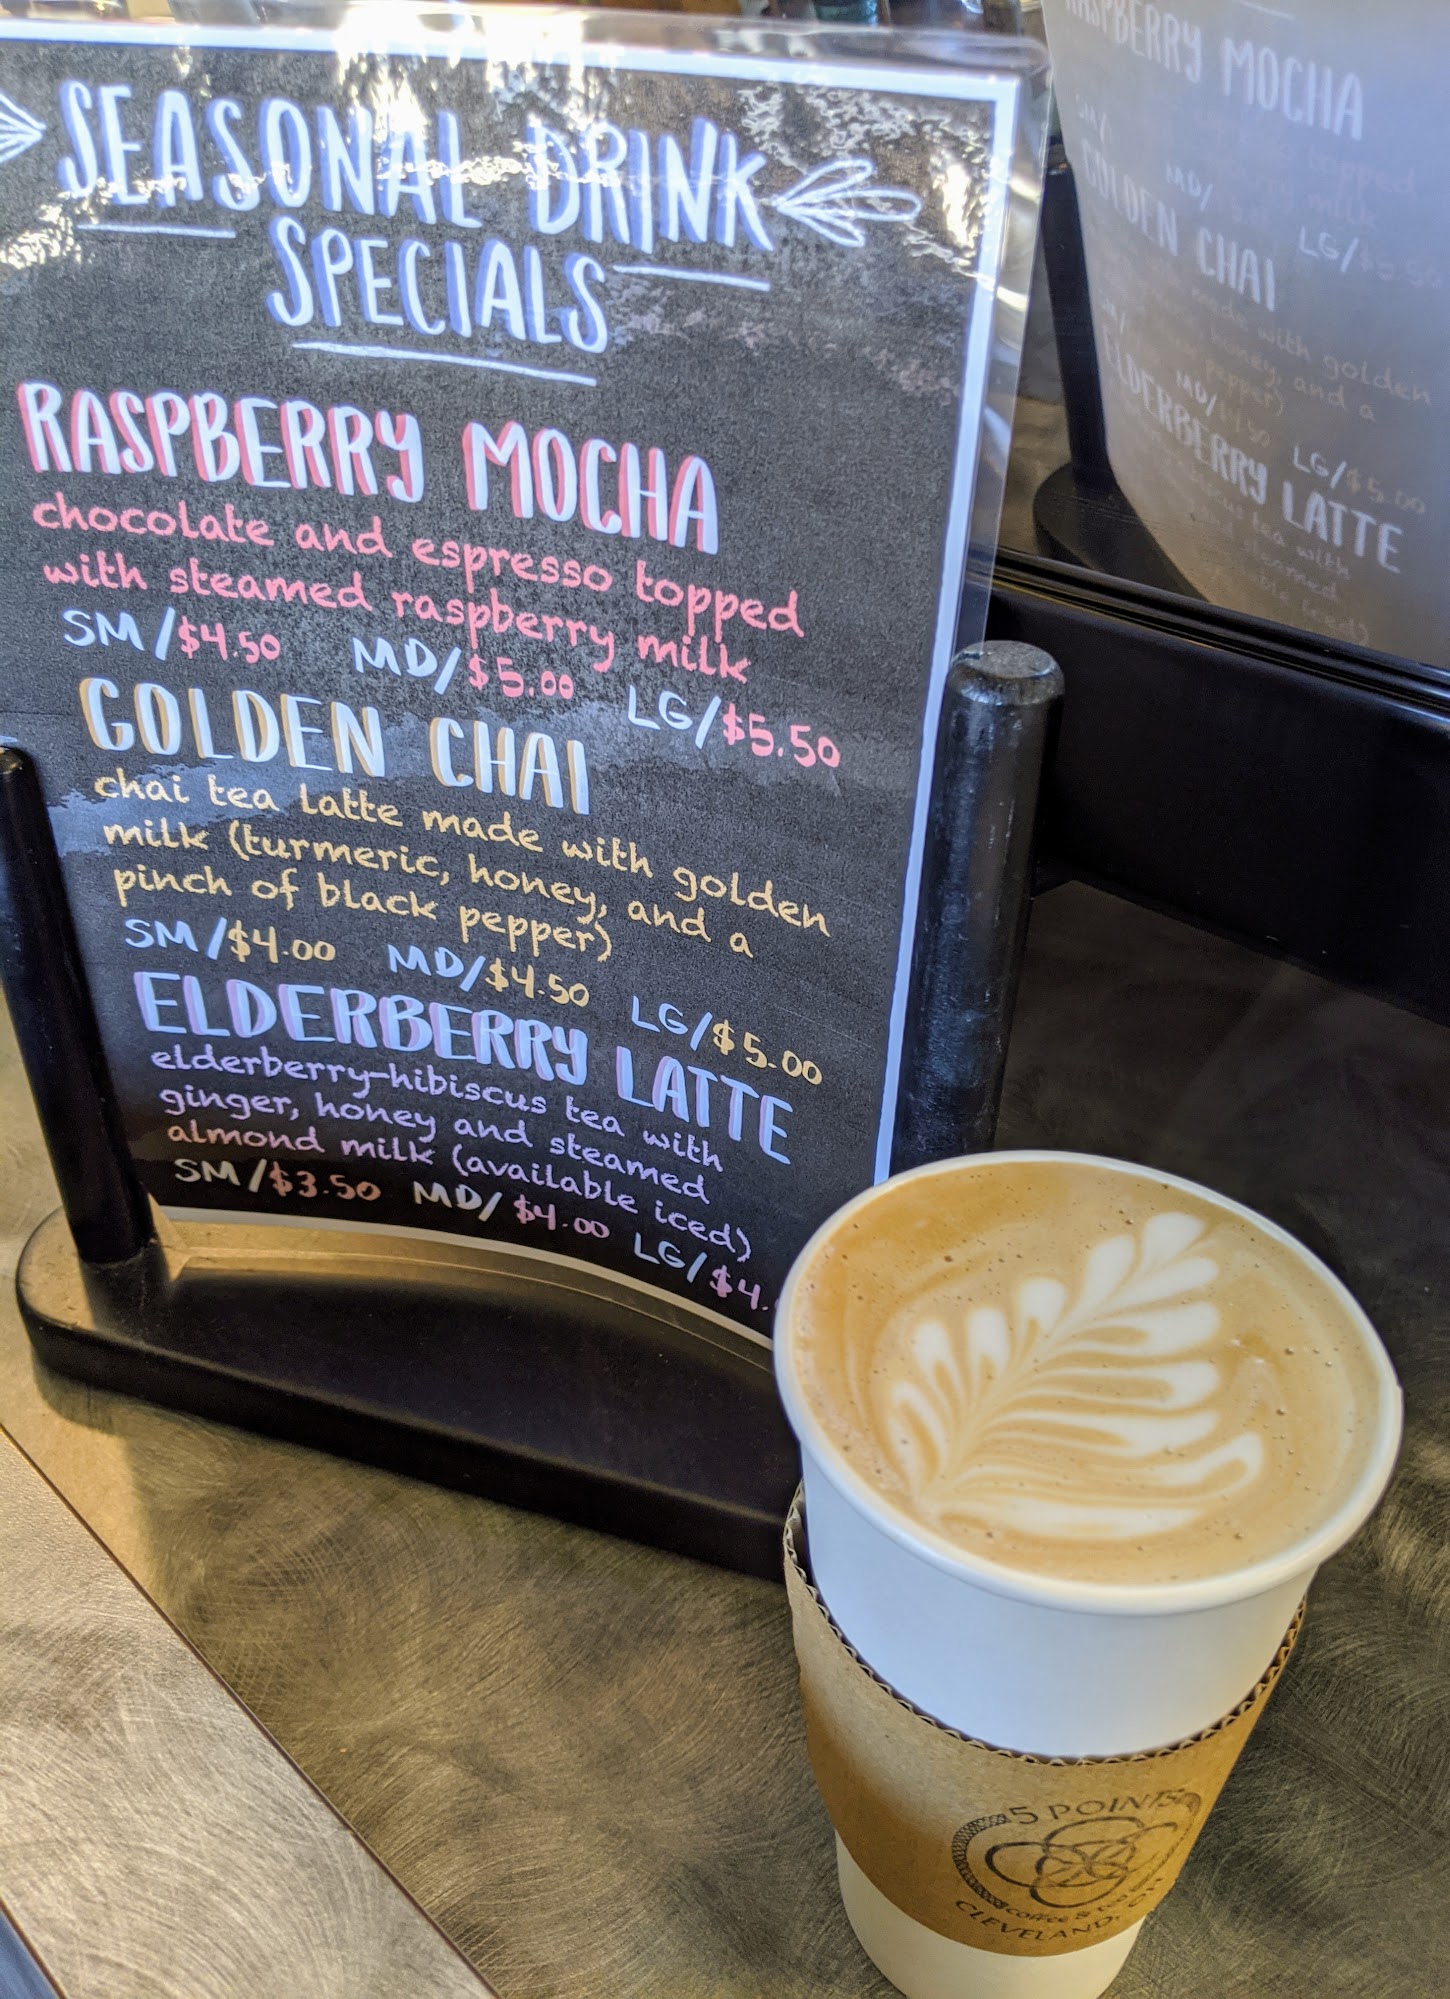 SEASONAL DRINK
SPECIALS
RASPBERRY MOCHA
chocolate and espresso topped
with steamed raspberry milk
SM/$4.50 MD/$5.00 LG/$5.50
GOLDEN CHAI
chai tea latte made with golden
milk (turmeric, honey, and a
pinch of black pepper)
SM/$4.00 MD/$4.50 LG/$5.00
ELDERBERRY LATTE
elderberry-hibiscus tea with
ginger, honey and steamed
almond milk (available iced)
SM/$3.50 MD/$4.00 LG/$4.
RASPBERRY MOCHA
GOLDEN CHAI
LG/$5.50
made with golden
honey, and a
pepper)
MD/$4.50 LG/$5.00
ELDERBERRY LATTE
5 POINTS
coffee & tea
CLEVELAND, OH